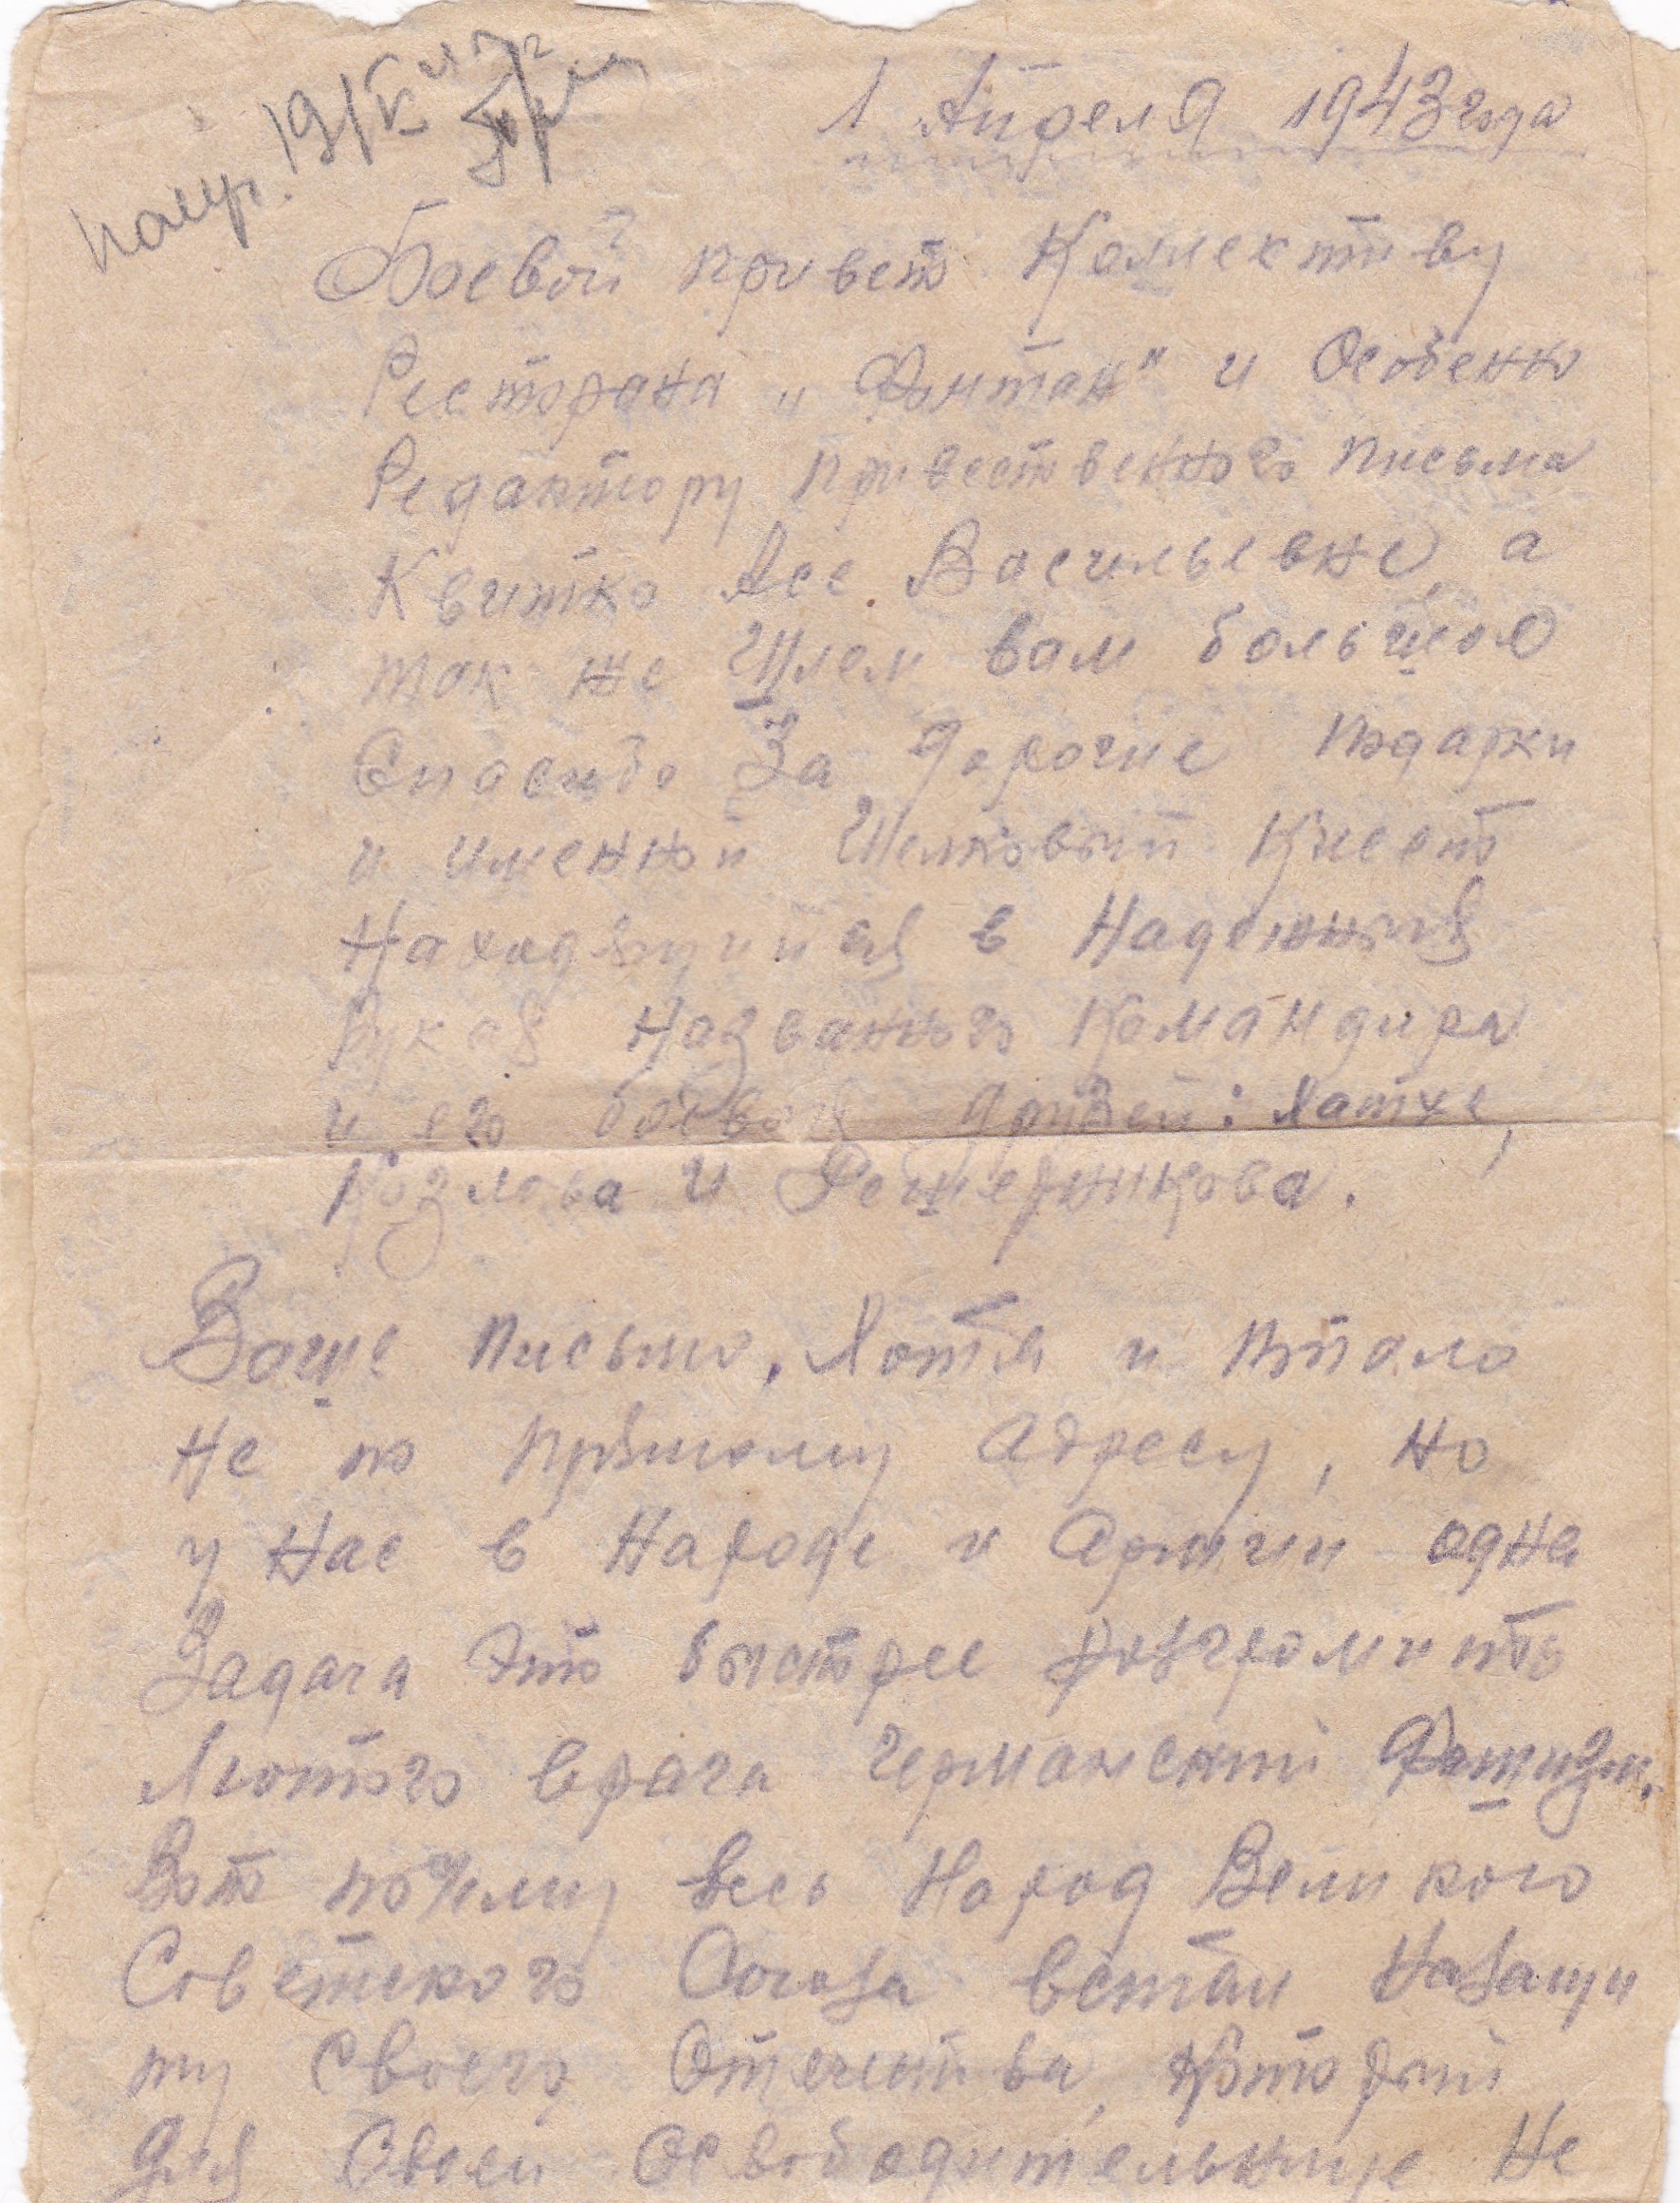 получ. 19/V 43 г.
1 Апреля 1943 года
Боевой привет Коллективу
Ресторана „Фонтан" и Особенно
Редактору приветственного письма
Квитко Асе Васильевне, а
так же Шлем вам большое
Спасибо За дорогие подарки
и именной Шелковый Кисет
Находящийся в Надежных
Руках Названного Командира
и его боевых друзей: Хатхе,
Козлова и Фельшерникова.
Ваше письмо, Хотя и попало
Не по прямому адресу, но
у Нас в Народе и Армии одна
Задача Это быстрее разгромить
Лютого врага германский Фашизм.
Вот почему весь Народ Великого
Советского Союза встал Назащи
ту Своего Отечества, который
для Своей Освободительнице Не